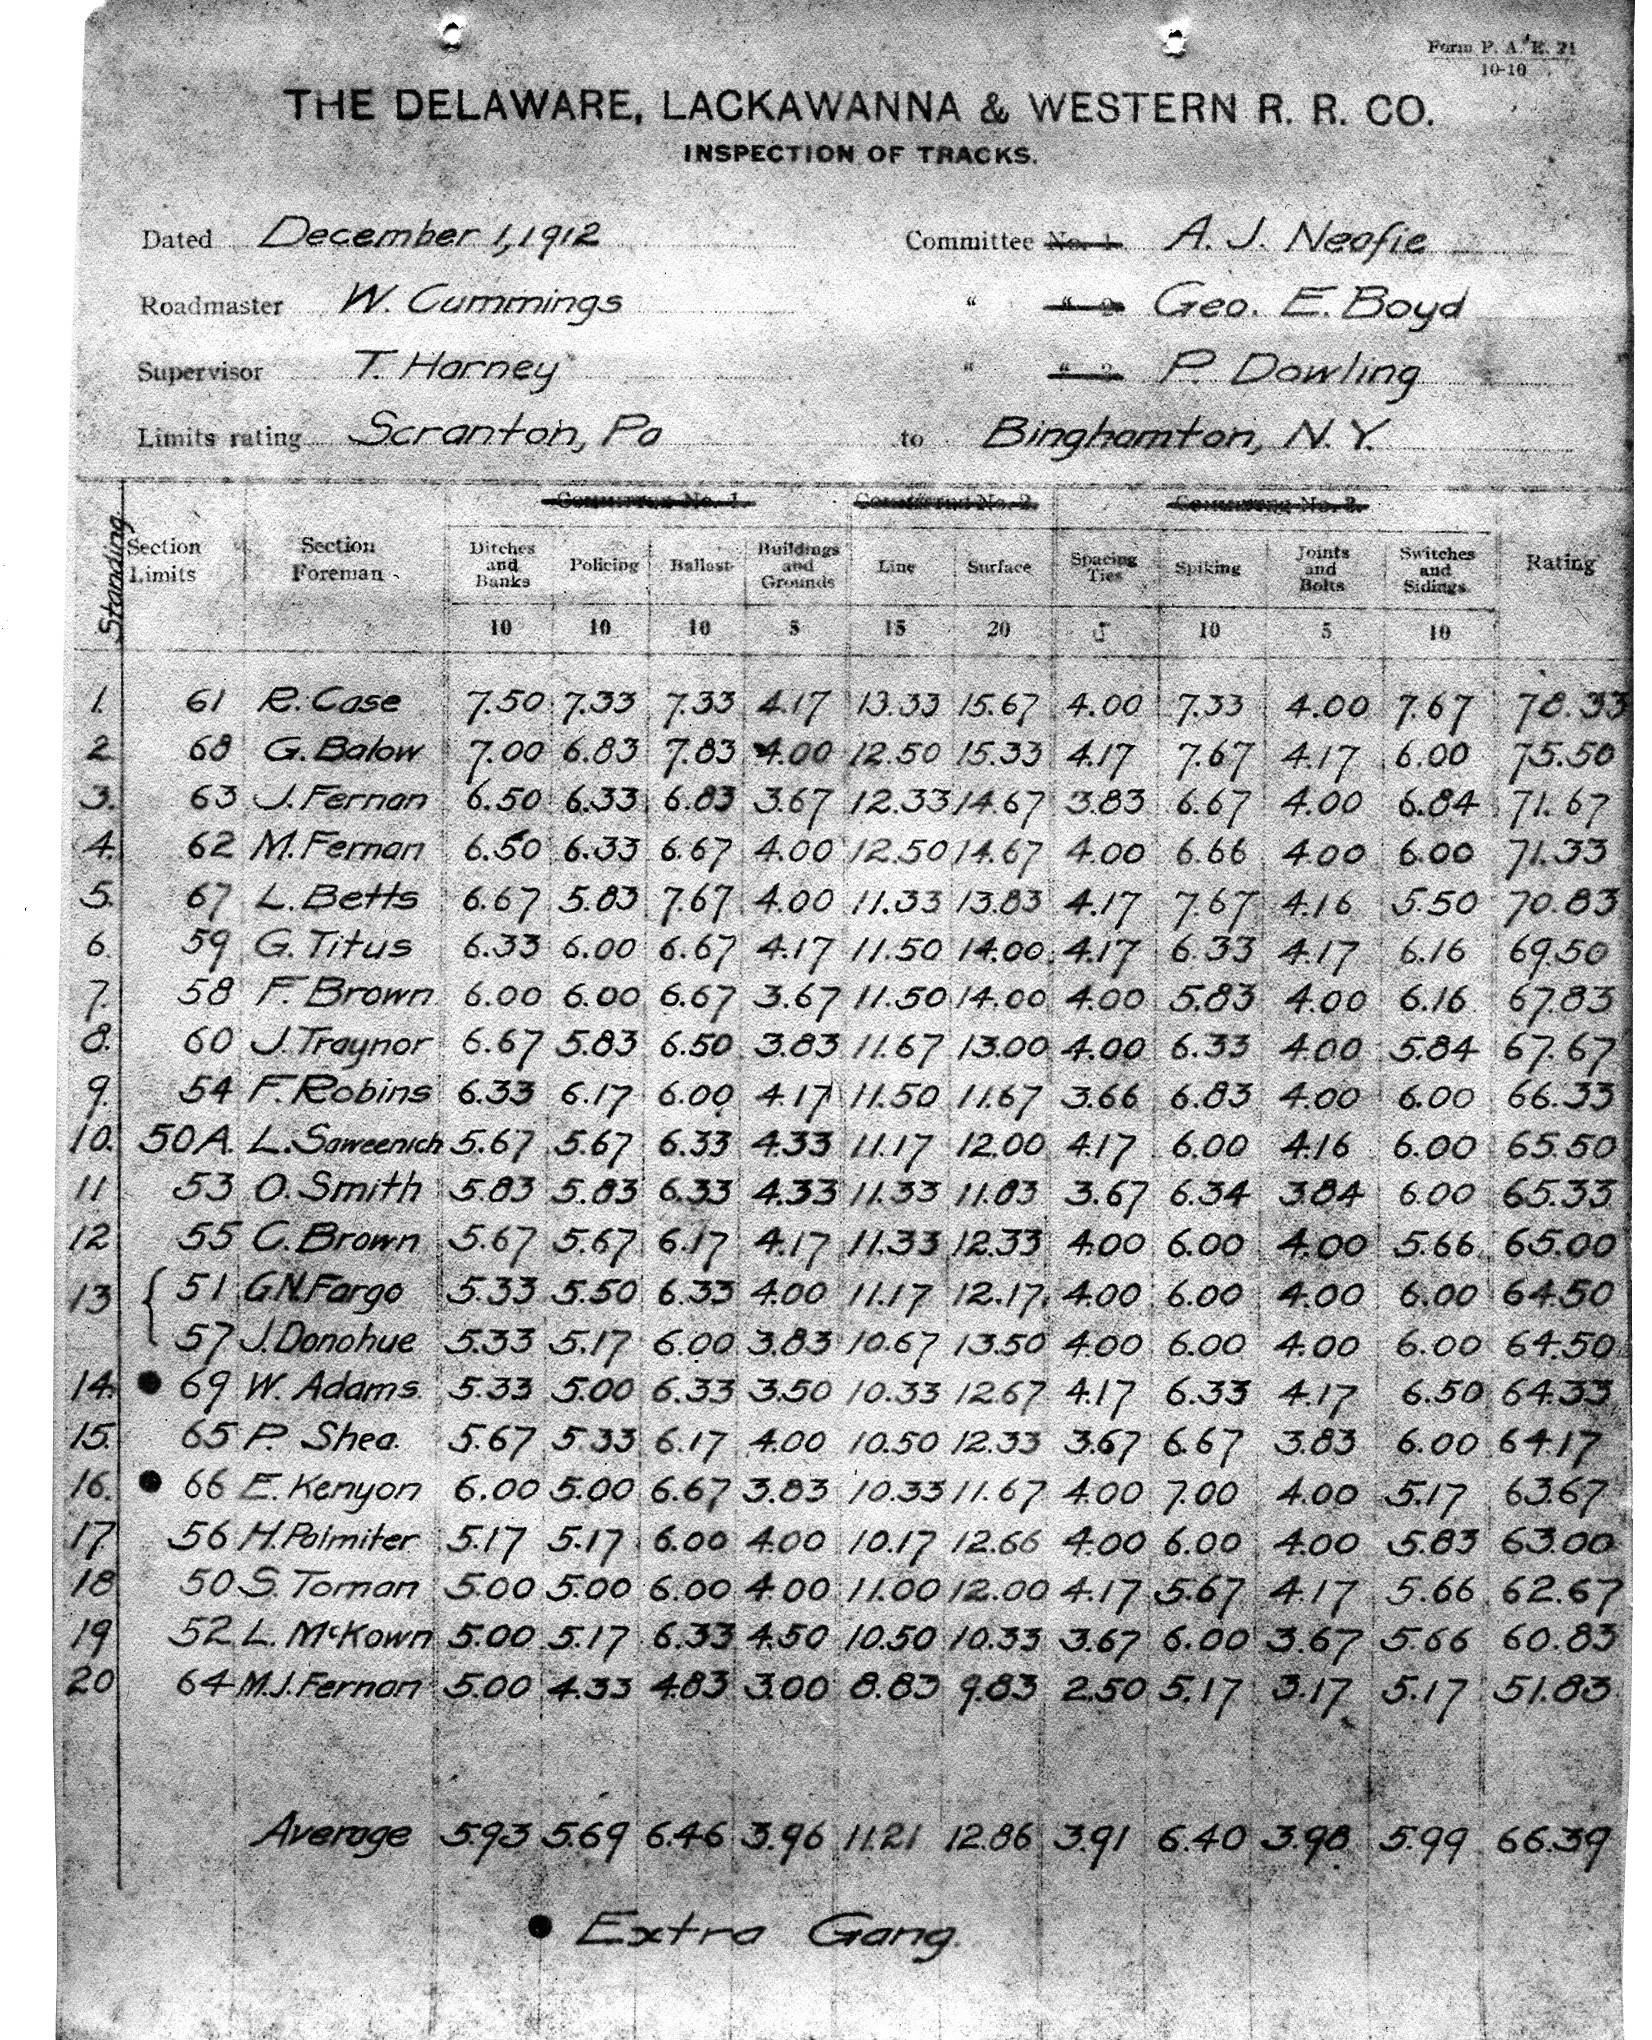 Form P. A. E. 21
10-10
THE DELAWARE, LACKAWANNA & WESTERN R. R. CO.
INSPECTION OF TRACKS.
Dated December 1, 1912 Committee No. 1 A. J. Neafie
Roadmaster W. Cummings " " 2 Geo. E. Boyd
Supervisor T. Harney " " 3 P. Dowling
Limits rating Scranton, Pa to Binghamton, N. Y.
Standing Section Limits Section Foreman Committee No. 1. Committee No. 2. Committee No. 3. Rating
Ditches and Banks Policing Ballast Buildings and Grounds Line Surface Spacing Ties Spiking Joints and Bolts Switches and Sidings
10 10 10 5 15 20 5 10 5 10
1. 61 R. Case 7.50 7.33 7.33 4.17 13.33 15.67 4.00 7.33 4.00 7.67 78.33
2. 68 G. Balow 7.00 6.83 7.83 4.00 12.50 15.33 4.17 7.67 4.17 6.00 75.50
3. 63 J. Fernan 6.50 6.33 6.83 3.67 12.33 14.67 3.83 6.67 4.00 6.84 71.67
4. 62 M. Fernan 6.50 6.33 6.67 4.00 12.50 14.67 4.00 6.66 4.00 6.00 71.33
5. 67 L. Betts 6.67 5.83 7.67 4.00 11.33 13.83 4.17 7.67 4.16 5.50 70.83
6. 59 G. Titus 6.33 6.00 6.67 4.17 11.50 14.00 4.17 6.33 4.17 6.16 69.50
7. 58 F. Brown 6.00 6.00 6.67 3.67 11.50 14.00 4.00 5.83 4.00 6.16 67.83
8. 60 J. Traynor 6.67 5.83 6.50 3.83 11.67 13.00 4.00 6.33 4.00 5.84 67.67
9. 54 F. Robins 6.33 6.17 6.00 4.17 11.50 11.67 3.66 6.83 4.00 6.00 66.33
10. 50A. L. Saweenich 5.67 5.67 6.33 4.33 11.17 12.00 4.17 6.00 4.16 6.00 65.50
11 53 O. Smith 5.83 5.83 6.33 4.33 11.33 11.83 3.67 6.34 3.84 6.00 65.33
12 55 C. Brown 5.67 5.67 6.17 4.17 11.33 12.33 4.00 6.00 4.00 5.66 65.00
13 { 51 G.N. Fargo 5.33 5.50 6.33 4.00 11.17 12.17 4.00 6.00 4.00 6.00 64.50
57 J. Donohue 5.33 5.17 6.00 3.83 10.67 13.50 4.00 6.00 4.00 6.00 64.50
14. ● 69 W. Adams 5.33 5.00 6.33 3.50 10.33 12.67 4.17 6.33 4.17 6.50 64.33
15. 65 P. Shea. 5.67 5.33 6.17 4.00 10.50 12.33 3.67 6.67 3.83 6.00 64.17
16. ● 66 E. Kenyon 6.00 5.00 6.67 3.83 10.33 11.67 4.00 7.00 4.00 5.17 63.67
17. 56 H. Palmiter 5.17 5.17 6.00 4.00 10.17 12.66 4.00 6.00 4.00 5.83 63.00
18 50 S. Toman 5.00 5.00 6.00 4.00 11.00 12.00 4.17 5.67 4.17 5.66 62.67
19 52 L. McKown 5.00 5.17 6.33 4.50 10.50 10.33 3.67 6.00 3.67 5.66 60.83
20 64 M.J. Fernan 5.00 4.33 4.83 3.00 8.83 9.83 2.50 5.17 3.17 5.17 51.83
Average 5.93 5.69 6.46 3.96 11.21 12.86 3.91 6.40 3.98 5.99 66.39
● Extra Gang.